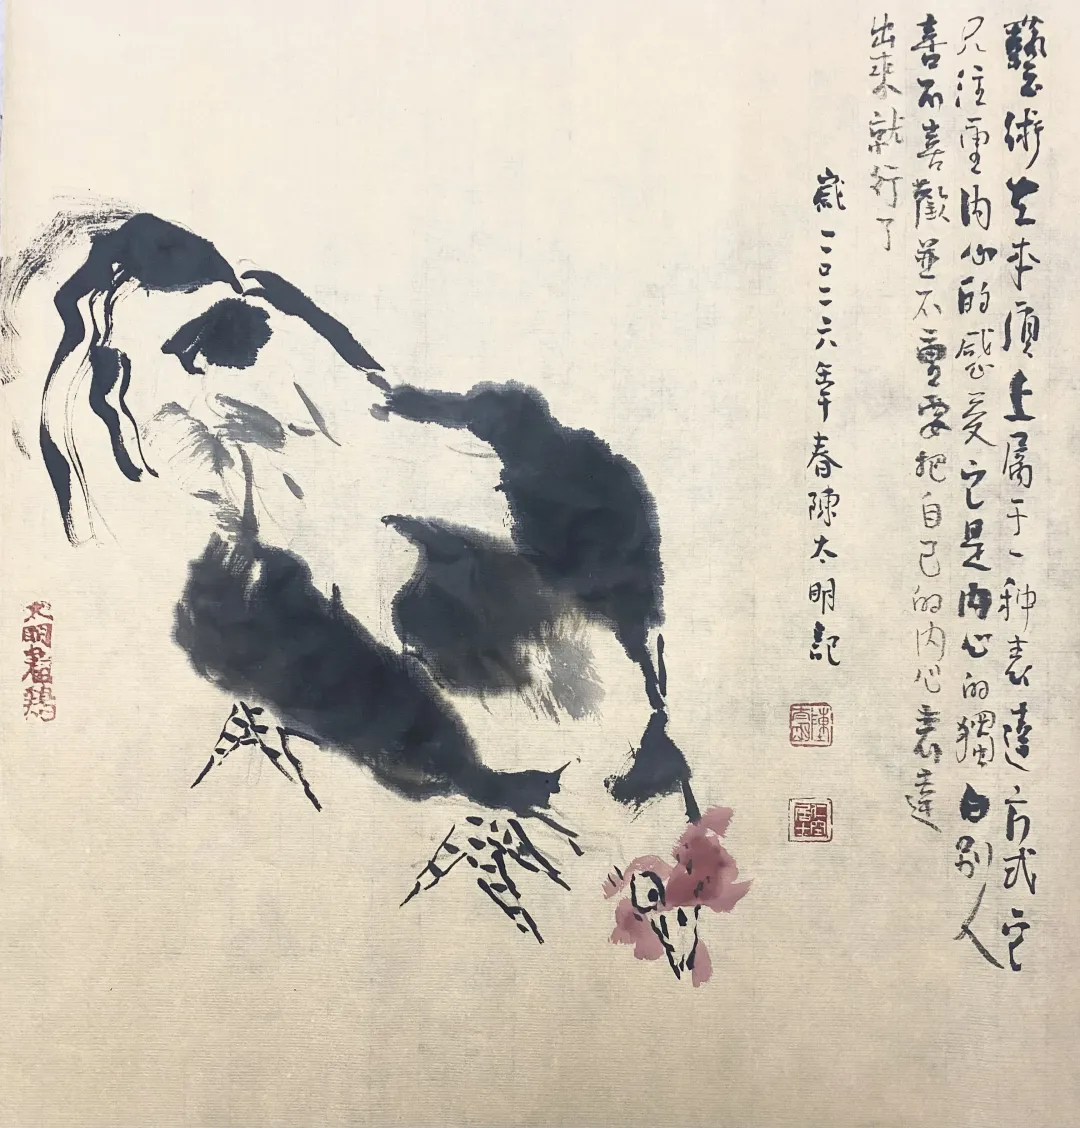 藝術在本质上属于一种表達方式它
只注重内心的感受它是内心的獨白别人
喜不喜歡並不重要把自己的内心表達
出來就行了
歲二〇二六年春陳太明記
太明畫鷄